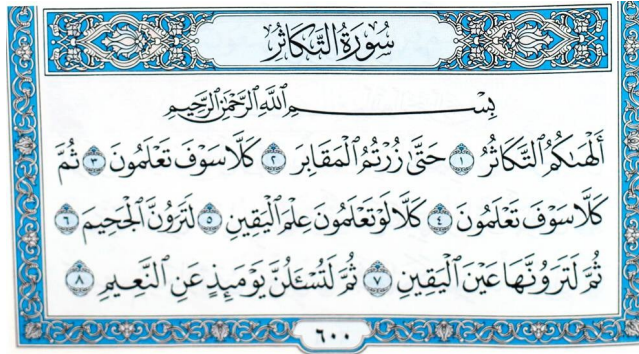 سُورَةُ التَّكَاثُرِ
بِسْمِ اللَّهِ الرَّحْمَٰنِ الرَّحِيمِ
أَلْهَىٰكُمُ ٱلتَّكَاثُرُ ١ حَتَّىٰ زُرْتُمُ ٱلْمَقَابِرَ ٢ كَلَّا سَوْفَ تَعْلَمُونَ ٣ ثُمَّ
كَلَّا سَوْفَ تَعْلَمُونَ ٤ كَلَّا لَوْ تَعْلَمُونَ عِلْمَ ٱلْيَقِينِ ٥ لَتَرَوُنَّ ٱلْجَحِيمَ ٦
ثُمَّ لَتَرَوُنَّهَا عَيْنَ ٱلْيَقِينِ ٧ ثُمَّ لَتُسْـَٔلُنَّ يَوْمَئِذٍ عَنِ ٱلنَّعِيمِ ٨
٦٠٠